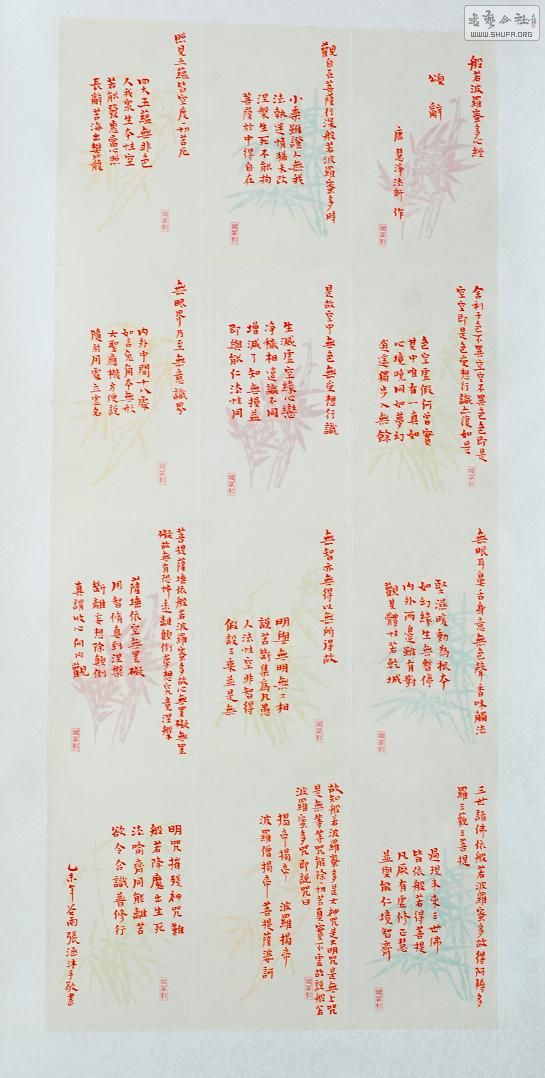 書藝公社
WWW.SHUFA.ORG
般若波羅蜜多心經
頌辭
唐 慧淨法師 作
觀自在菩薩行深般若波羅蜜多時
小乘雖證人無我
法執迷情猶未改
涅槃生死不能拘
菩薩於中得自在
照見五蘊皆空度一切苦厄
四大五蘊無非色
人我衆生本性空
若能發慧當心照
長辭苦海出樊籠
舍利子色不異空空不異色色即是
空空即是色受想行識亦復如是
色空空假何曾實
其中唯有一真如
心境暁同如夢幻
逍遙獨步入無餘
是故空中無色無受想行識
生滅虛空緣心戀
淨穢相違識不同
增減了知無損益
即與能仁法性同
無眼界乃至無意識界
內外中間十八處
如言兔角本無形
大聖應機方便說
隨於用處立虛名
無眼耳鼻舌身意無色聲香味觸法
堅濕暖動為根本
如幻緣生無暫停
內外兩邊雖有對
觀其體廿若乾城
無智亦無得以無所得故
明與無明無二相
說苦斷集為凡愚
人法性空非智得
假設三乘並是無
菩提薩埵依般若波羅蜜多故心無罣礙無罣
礙故無有恐怖遠離顛倒夢想究竟涅槃
薩埵依空無罣礙
用智脩真到涅槃
斷離妄想除顛倒
真謂收心向內觀
三世諸佛依般若波羅蜜多故得阿耨多
羅三藐三菩提
過現未來三世佛
皆依般若得菩提
凡厥有虛修正慧
並與能仁境智齊
故知般若波羅蜜多是大神咒是大明咒是無上咒
是無等等咒能除一切苦真實不虛故說般若
波羅蜜多咒即說咒曰
揭帝揭帝 波羅揭帝
波羅僧揭帝 菩提薩婆訶
明咒摧殘神咒難
般若降魔出生死
法喻齊同能離苦
欲令含識善修行
乙未年谷雨張涵沐手敬書